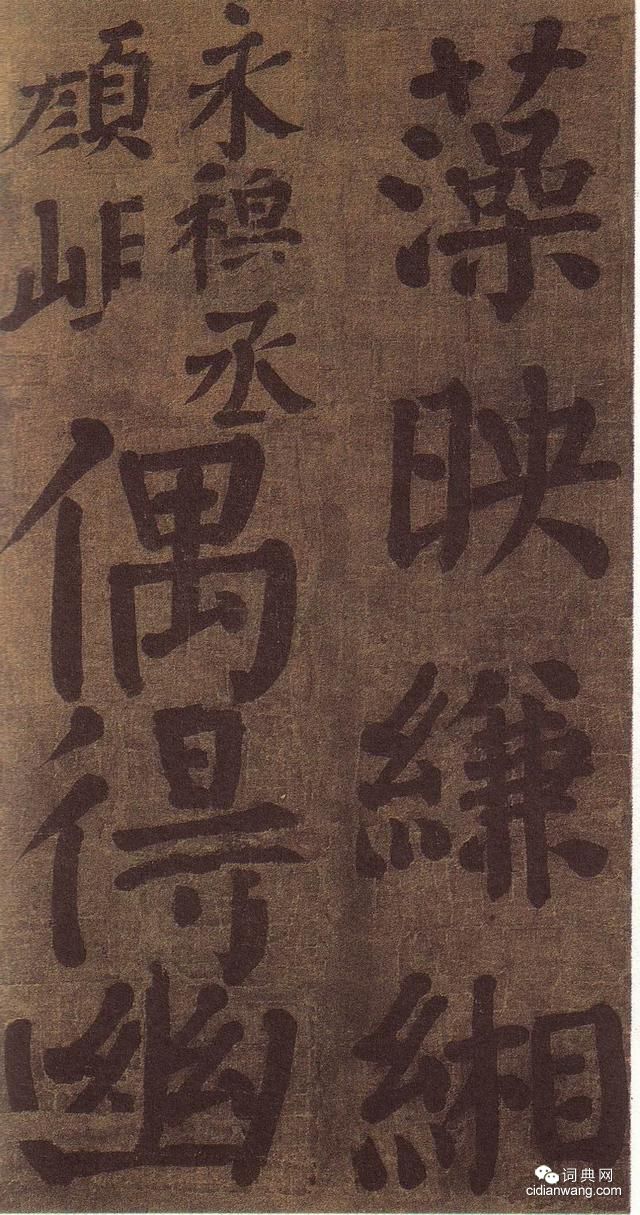 藻映縑緗
永穆丞
顏
偶得幽
词典网
cidianwang.com